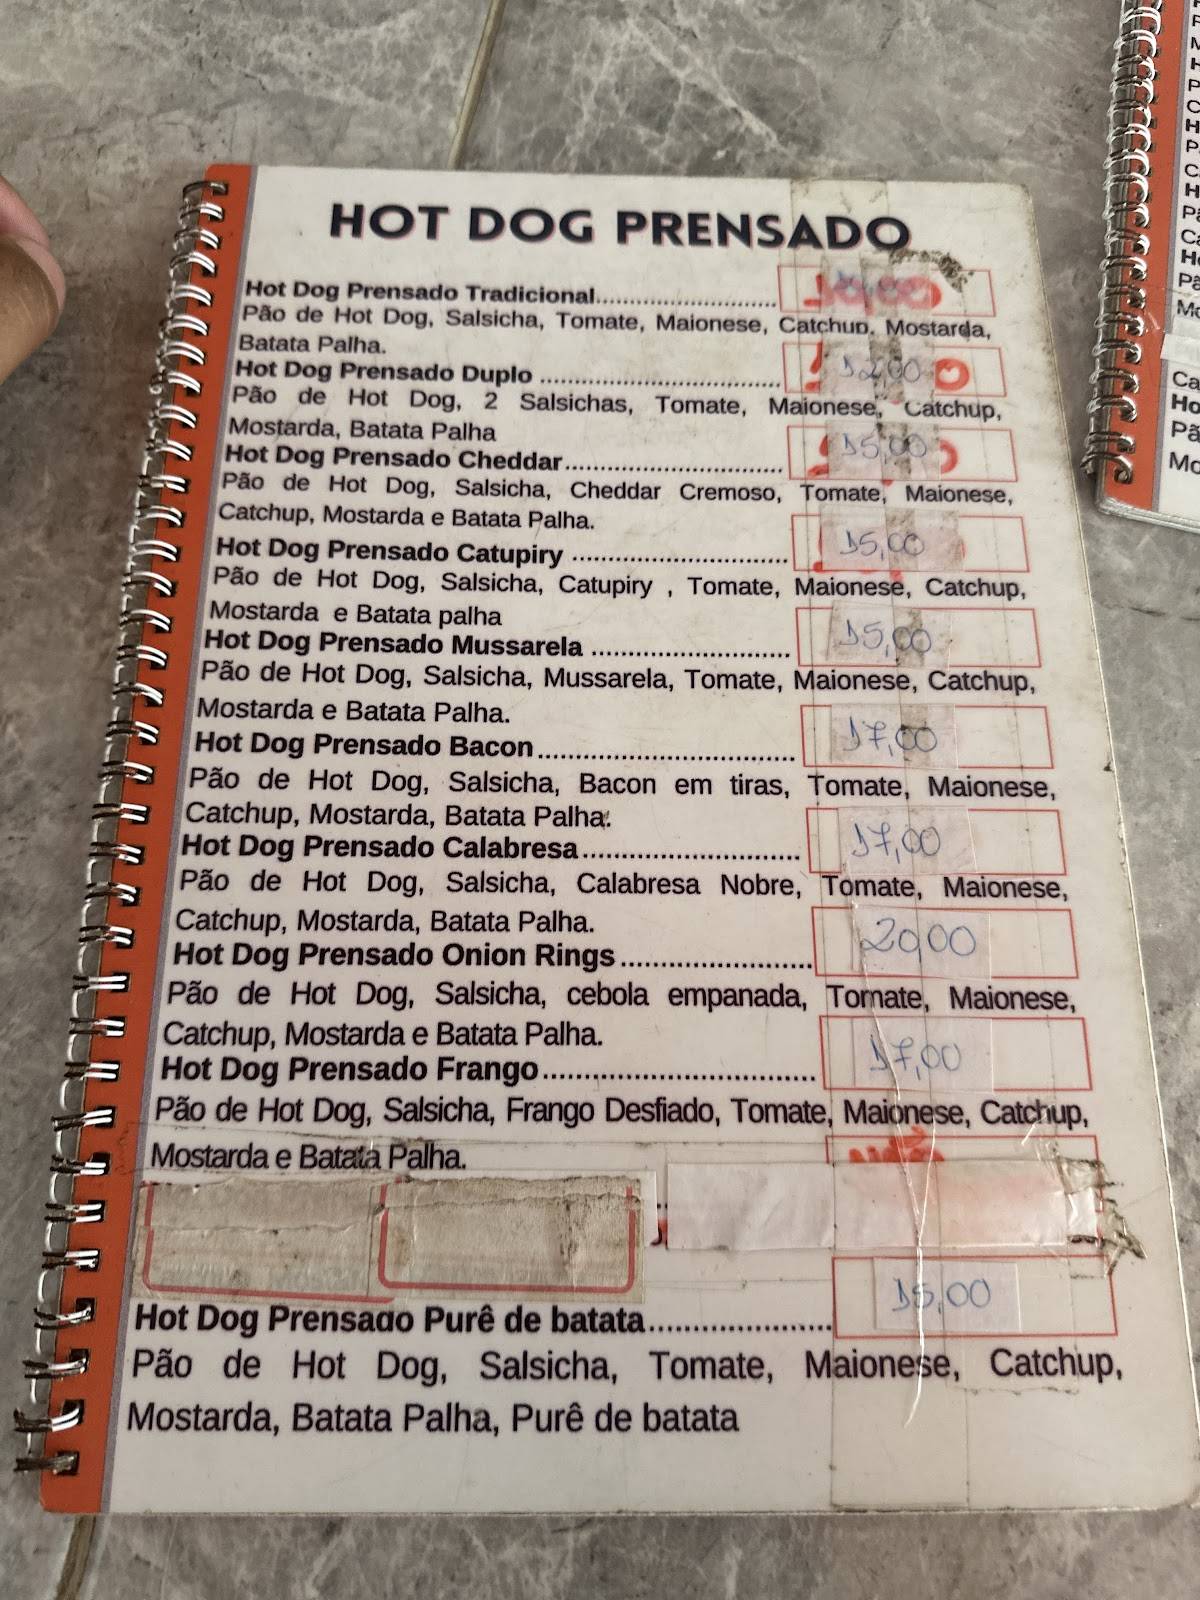 HOT DOG PRENSADO
Hot Dog Prensado Tradicional..............................
Pão de Hot Dog, Salsicha, Tomate, Maionese, Catchup, Mostarda,
Batata Palha.
Hot Dog Prensado Duplo .................................... 12,00
Pão de Hot Dog, 2 Salsichas, Tomate, Maionese, Catchup,
Mostarda, Batata Palha
Hot Dog Prensado Cheddar................................ 15,00
Pão de Hot Dog, Salsicha, Cheddar Cremoso, Tomate, Maionese,
Catchup, Mostarda e Batata Palha.
Hot Dog Prensado Catupiry ............................... 15,00
Pão de Hot Dog, Salsicha, Catupiry , Tomate, Maionese, Catchup,
Mostarda e Batata palha
Hot Dog Prensado Mussarela ............................ 15,00
Pão de Hot Dog, Salsicha, Mussarela, Tomate, Maionese, Catchup,
Mostarda e Batata Palha.
Hot Dog Prensado Bacon................................... 17,00
Pão de Hot Dog, Salsicha, Bacon em tiras, Tomate, Maionese,
Catchup, Mostarda, Batata Palha.
Hot Dog Prensado Calabresa............................. 17,00
Pão de Hot Dog, Salsicha, Calabresa Nobre, Tomate, Maionese,
Catchup, Mostarda, Batata Palha.
Hot Dog Prensado Onion Rings......................... 20,00
Pão de Hot Dog, Salsicha, cebola empanada, Tomate, Maionese,
Catchup, Mostarda e Batata Palha.
Hot Dog Prensado Frango.................................. 17,00
Pão de Hot Dog, Salsicha, Frango Desfiado, Tomate, Maionese, Catchup,
Mostarda e Batata Palha.
Hot Dog Prensado Purê de batata..................... 15,00
Pão de Hot Dog, Salsicha, Tomate, Maionese, Catchup,
Mostarda, Batata Palha, Purê de batata